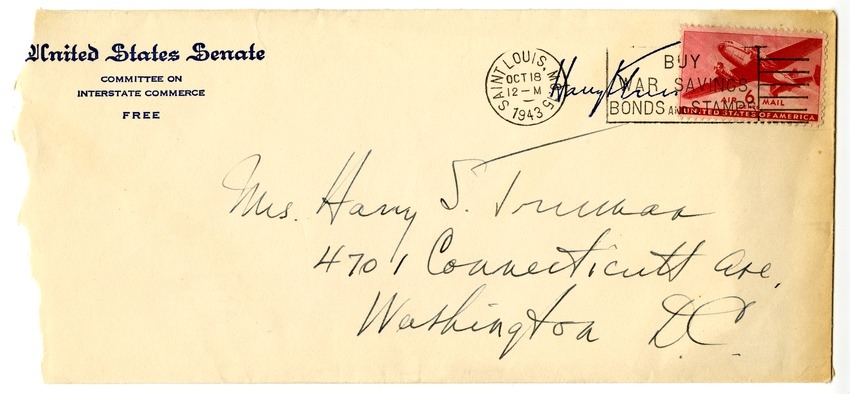 United States Senate
COMMITTEE ON
INTERSTATE COMMERCE
FREE
SAINT LOUIS, MO.
OCT 18
12-M
1943
5
BUY
WAR SAVINGS
BONDS AND STAMPS
Harry
AIR 6¢ MAIL
UNITED STATES OF AMERICA
Mrs. Harry S. Truman
4701 Connecticutt Ave,
Washington D.C.